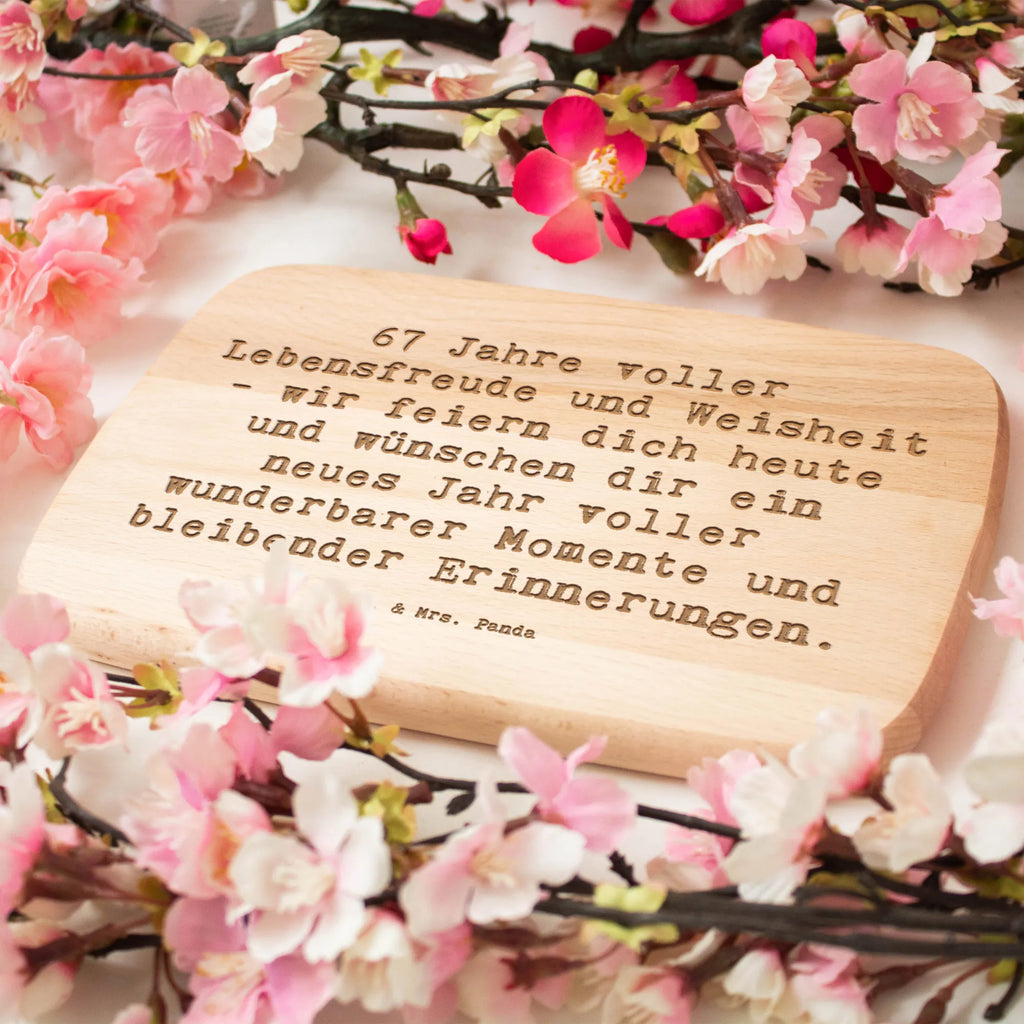 67 Jahre voller
Lebensfreude und Weisheit
- wir feiern dich heute
und wünschen dir ein
neues Jahr voller
wunderbarer Momente und
bleibender Erinnerungen.
& Mrs. Panda